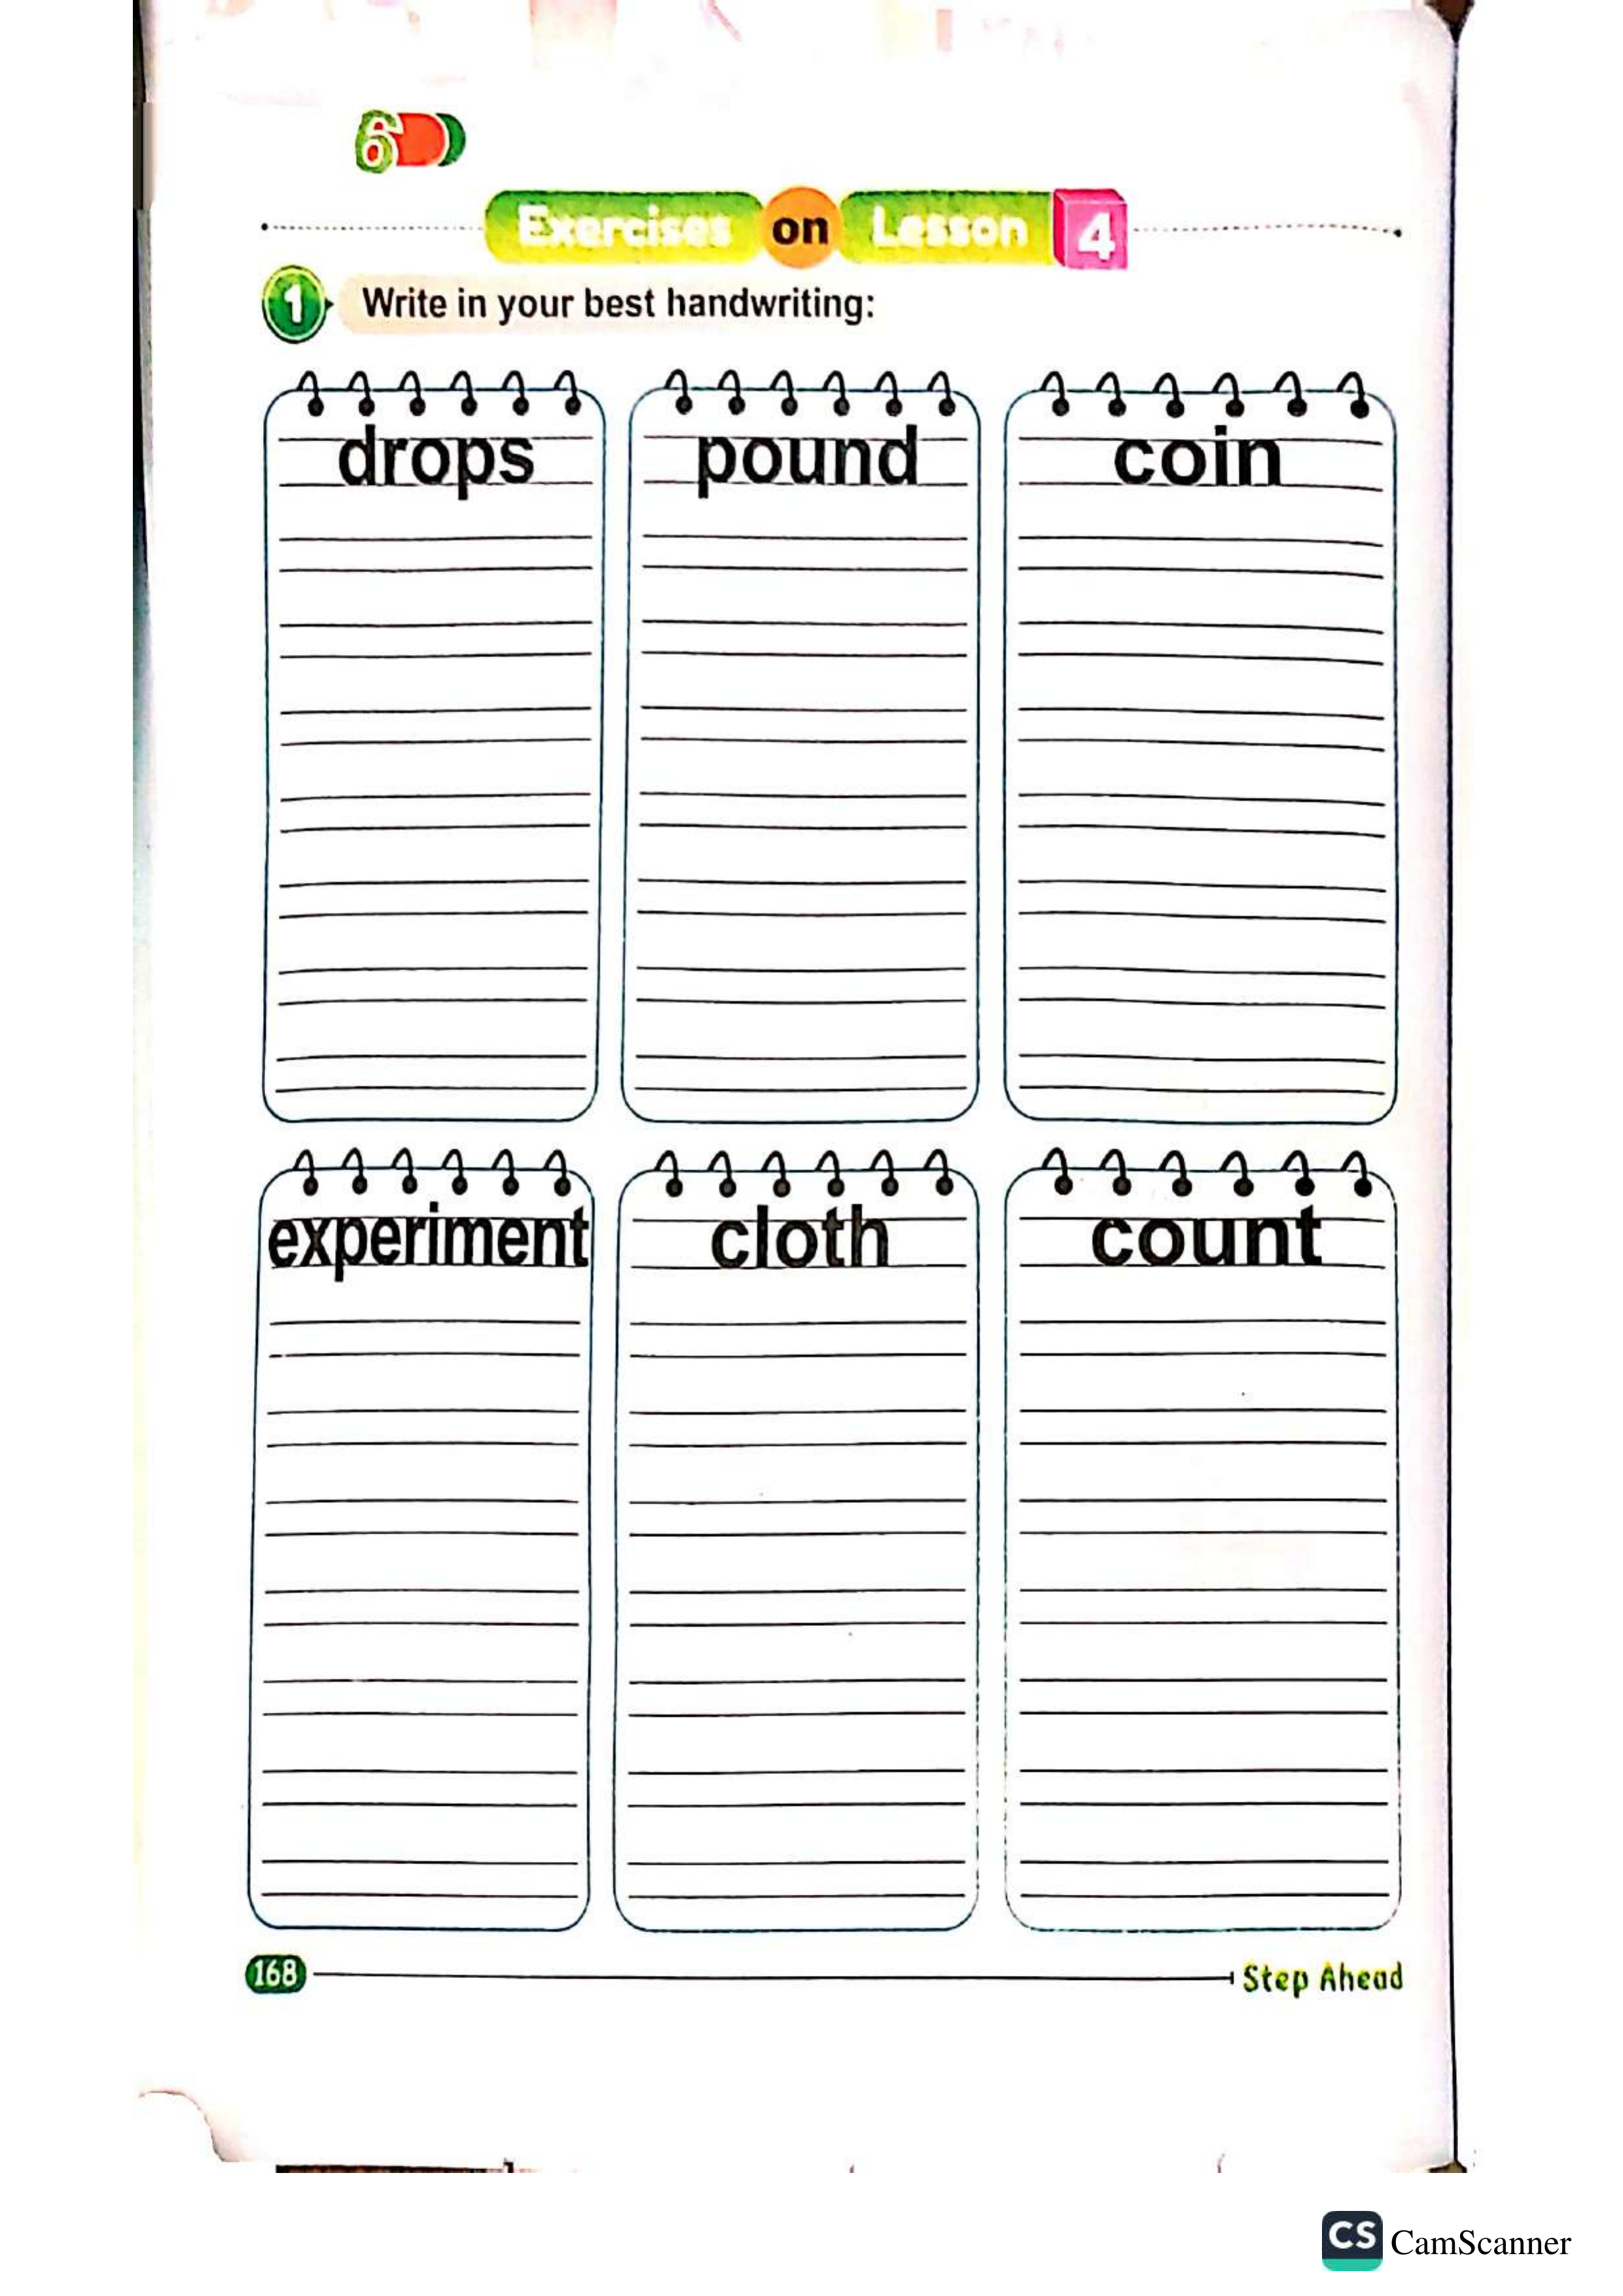 6
Exercises on Lesson 4
1 Write in your best handwriting:
drops pound coin
experiment cloth count
168 Step Ahead
CS CamScanner